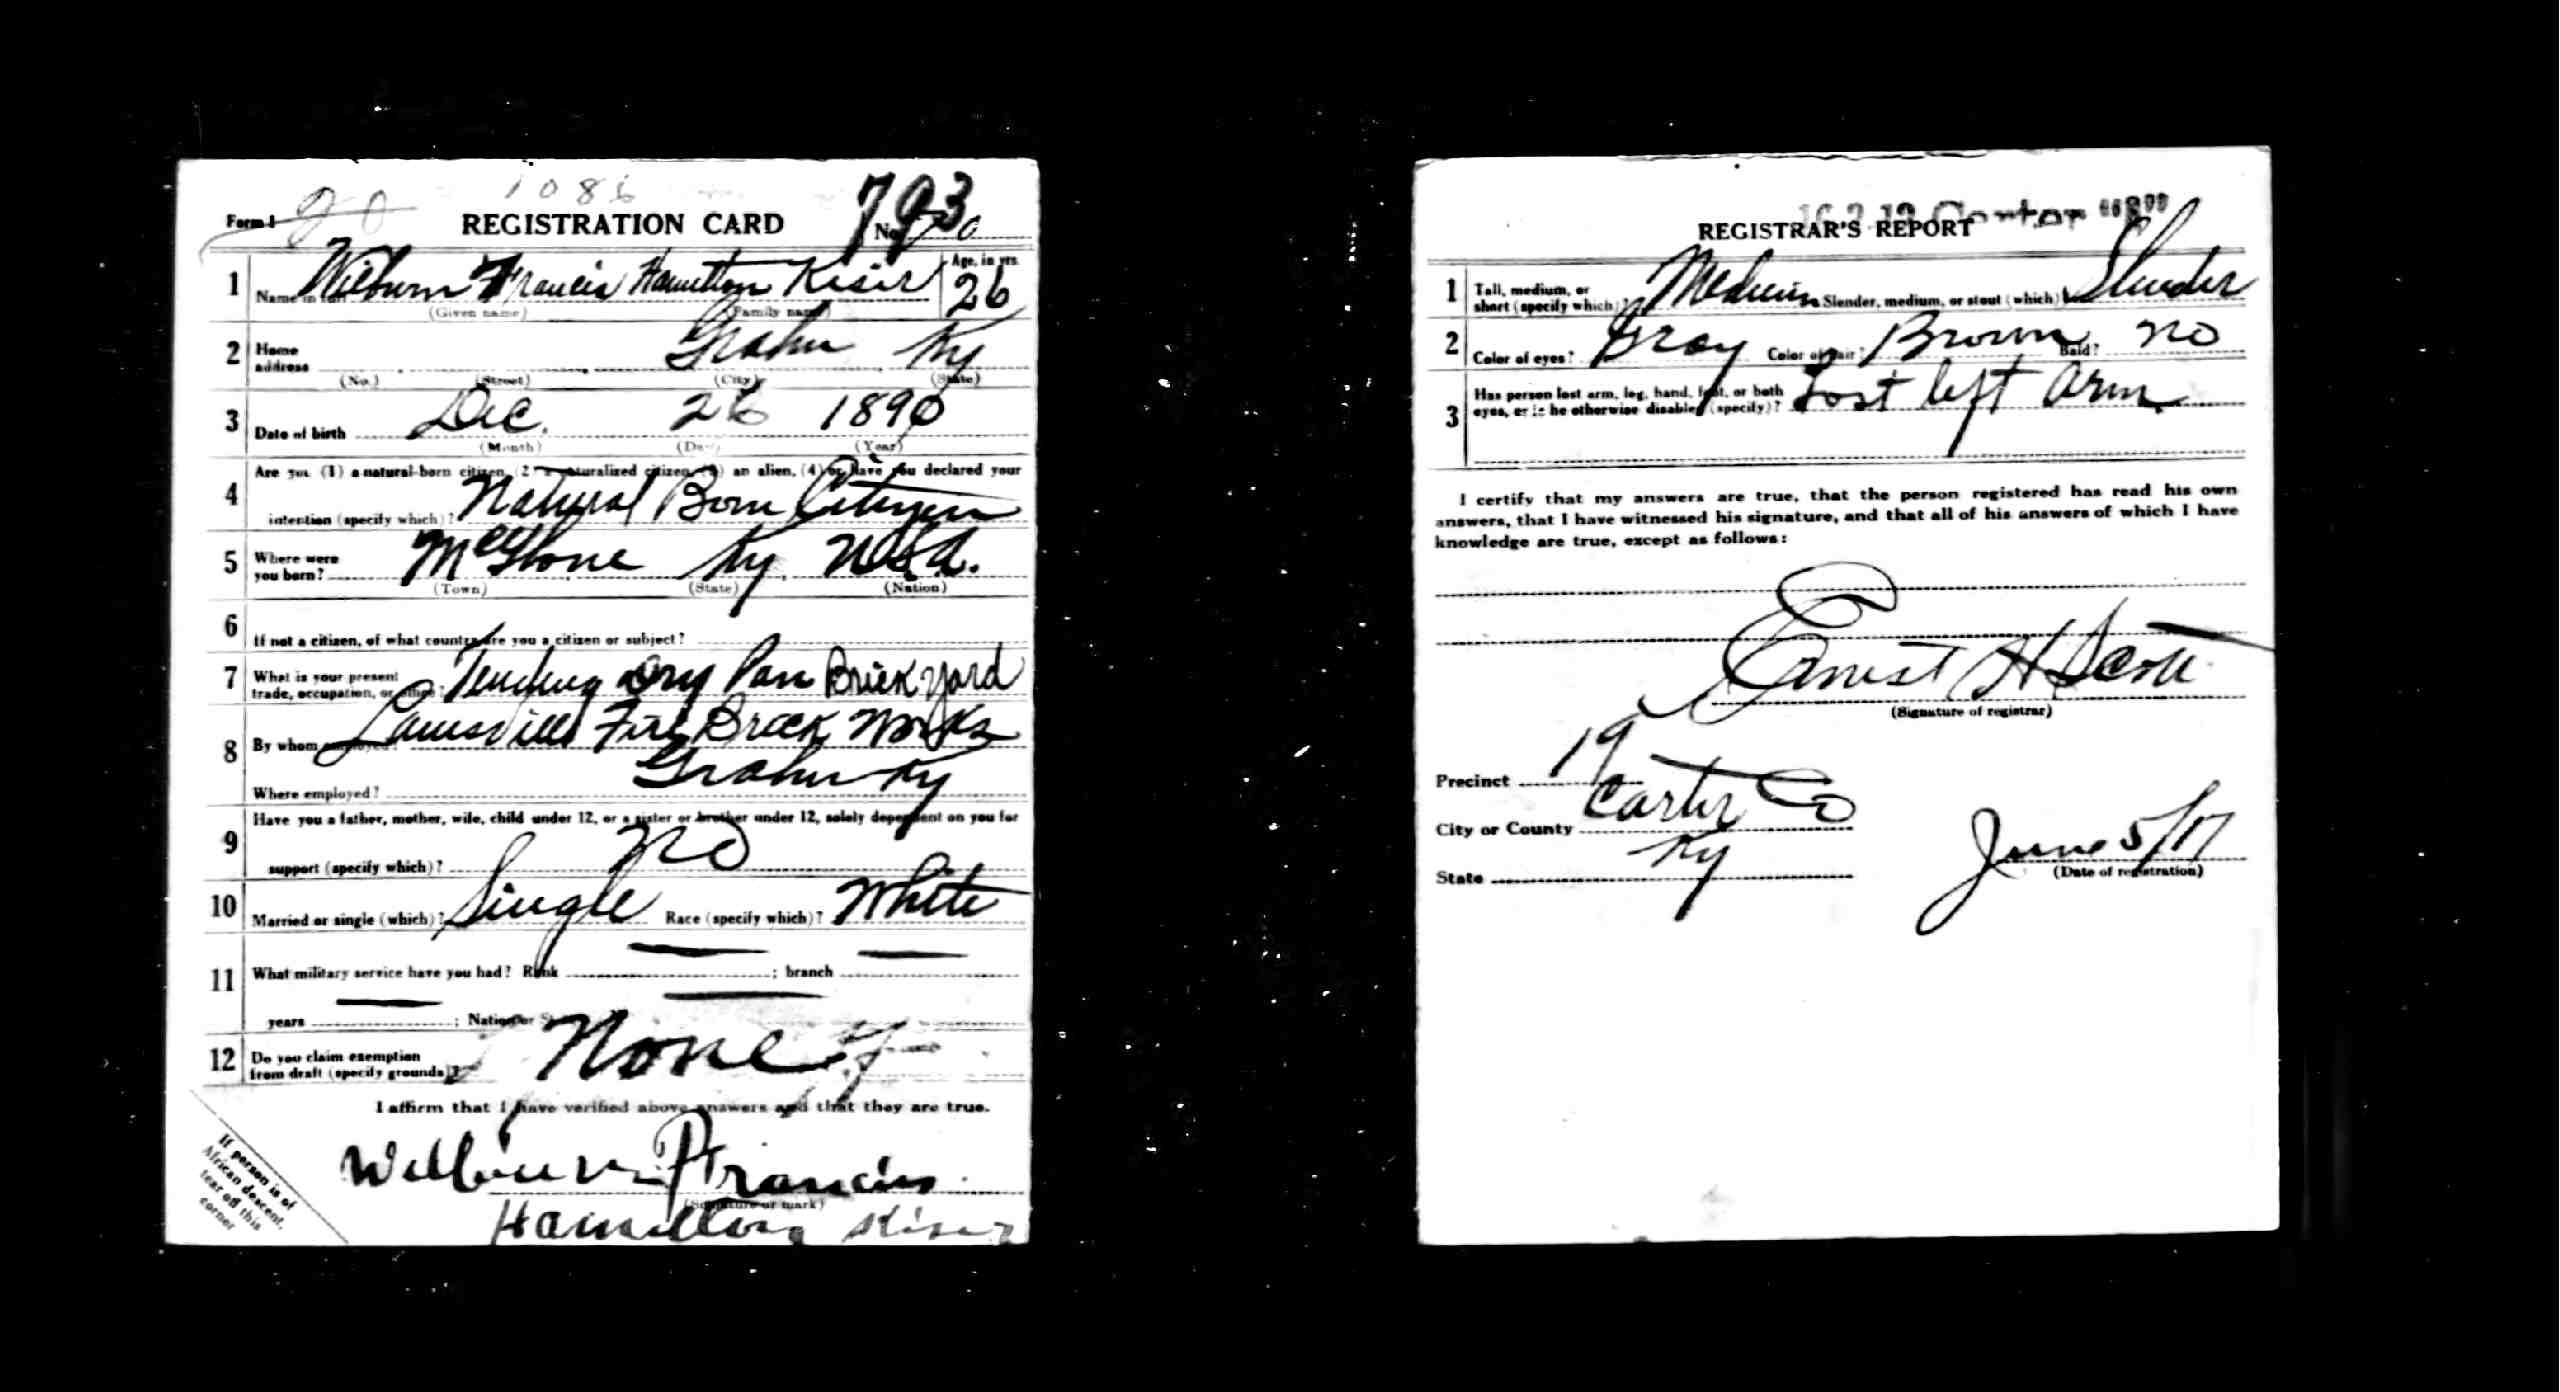 1086
793
Form 1 REGISTRATION CARD No.
1 Name in full Wilburn Francis Hamilton Kiser Age, in yrs. 26
(Given name) (Family name)
2 Home address Grahn Ky
(No.) (Street) (City) (State)
3 Date of birth Dec. 26 1890
(Month) (Day) (Year)
4 Are you (1) a natural-born citizen, (2) a naturalized citizen, (3) an alien, (4) or have you declared your
intention (specify which)? Natural Born Citizen
5 Where were you born? McGlone Ky U.S.A.
(Town) (State) (Nation)
6 If not a citizen, of what country are you a citizen or subject?
7 What is your present trade, occupation, or office? Tending Dry Pan Brick Yard
8 By whom employed? Louisville Fire Brick Works
Where employed? Grahn Ky
9 Have you a father, mother, wife, child under 12, or a sister or brother under 12, solely dependent on you for
support (specify which)? No
10 Married or single (which)? Single Race (specify which)? White
11 What military service have you had? Rank ; branch
years ; Nation or State
12 Do you claim exemption from draft (specify grounds)? None
I affirm that I have verified above answers and that they are true.
Wilburn Francis
(Signature or mark)
Hamilton Kiser
If person is of
African descent,
tear off this
corner
REGISTRAR'S REPORT
1 Tall, medium, or short (specify which)? Medium Slender, medium, or stout (which)? Slender
2 Color of eyes? Gray Color of hair? Brown Bald? No
3 Has person lost arm, leg, hand, foot, or both eyes, or is he otherwise disabled (specify)? Lost left Arm
I certify that my answers are true, that the person registered has read his own
answers, that I have witnessed his signature, and that all of his answers of which I have
knowledge are true, except as follows:
Ernest H Scott
(Signature of registrar)
Precinct 19
City or County Carter Co
State Ky
June 5/17
(Date of registration)